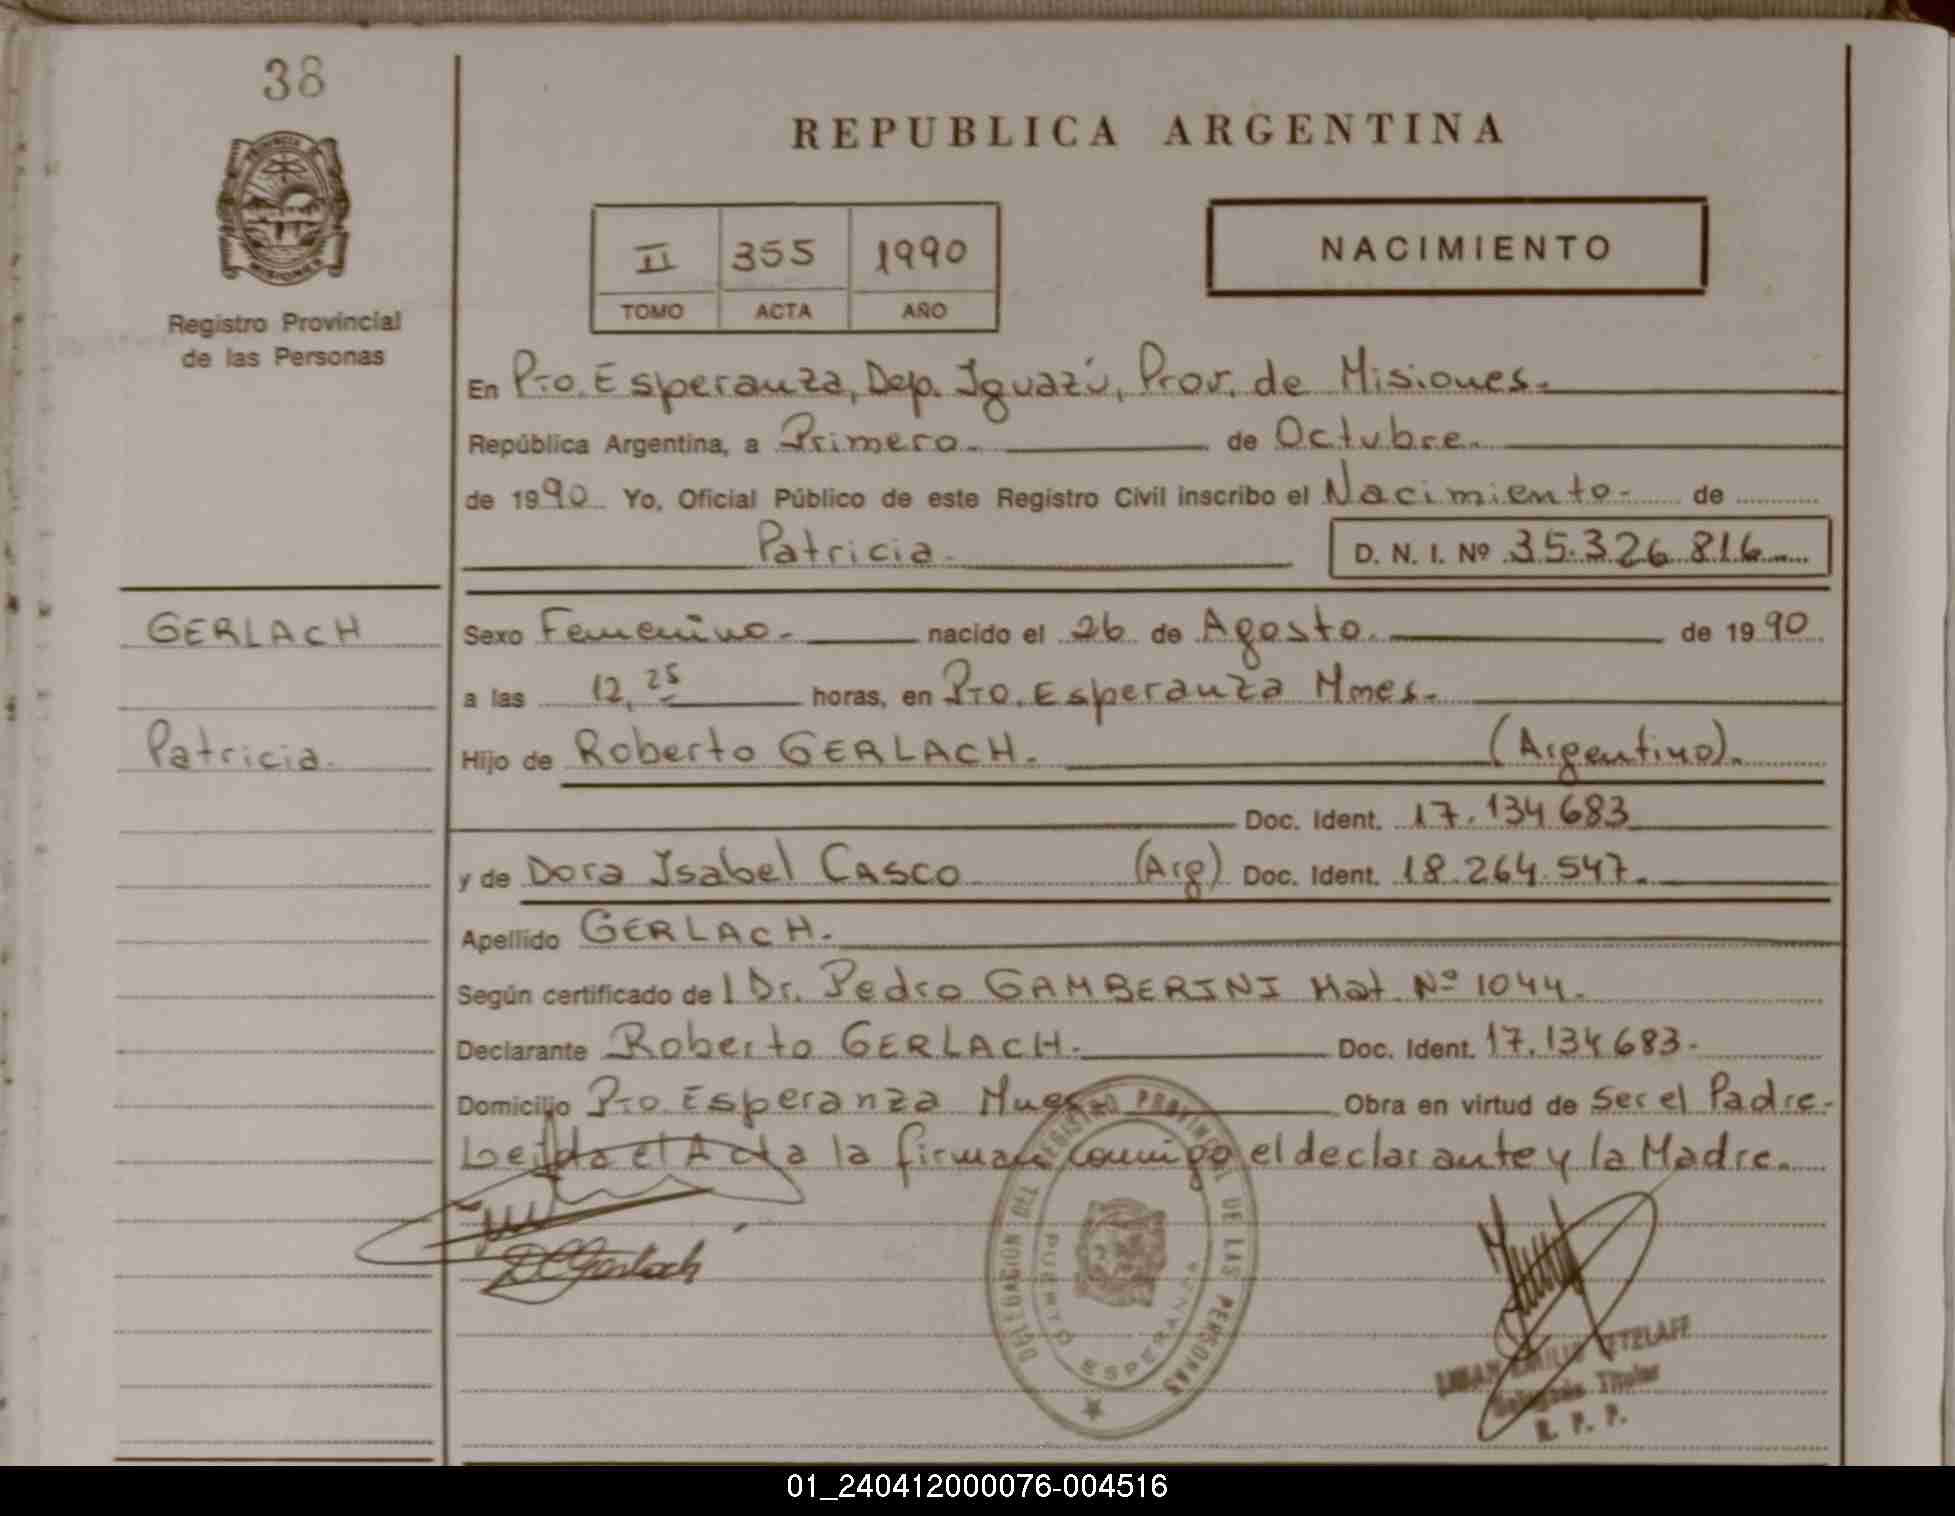 38
REPUBLICA ARGENTINA
PROVINCIA
MISIONES
Registro Provincial
de las Personas
II 355 1990
TOMO ACTA AÑO
NACIMIENTO
En Pto. Esperanza, Dep. Iguazú, Prov. de Misiones.
República Argentina, a Primero. de Octubre.
de 1990 Yo, Oficial Público de este Registro Civil inscribo el Nacimiento- de
Patricia.
D. N. I. Nº 35.326.816
GERLACH
Sexo Femenino. nacido el 26 de Agosto. de 1990
a las 12,25 horas, en Pto. Esperanza Mnes.
Patricia.
Hijo de Roberto GERLACH. (Argentino).
Doc. Ident. 17.134.683
y de Dora Isabel CASCO (Arg) Doc. Ident. 18.264.547.
Apellido GERLACH.
Según certificado de l Dr. Pedro GAMBERINI Mat. Nº 1044.
Declarante Roberto GERLACH. Doc. Ident. 17.134.683.
Domicilio Pto. Esperanza Mnes Obra en virtud de Ser el Padre.
Leida el Acta la firman conmigo el declarante y la Madre.
DCGerlach
DELEGACION DEL REGISTRO PROVINCIAL DE LAS PERSONAS
PUERTO ESPERANZA
EMILIO
Delegado Titular
R. P. P.
01_240412000076-004516